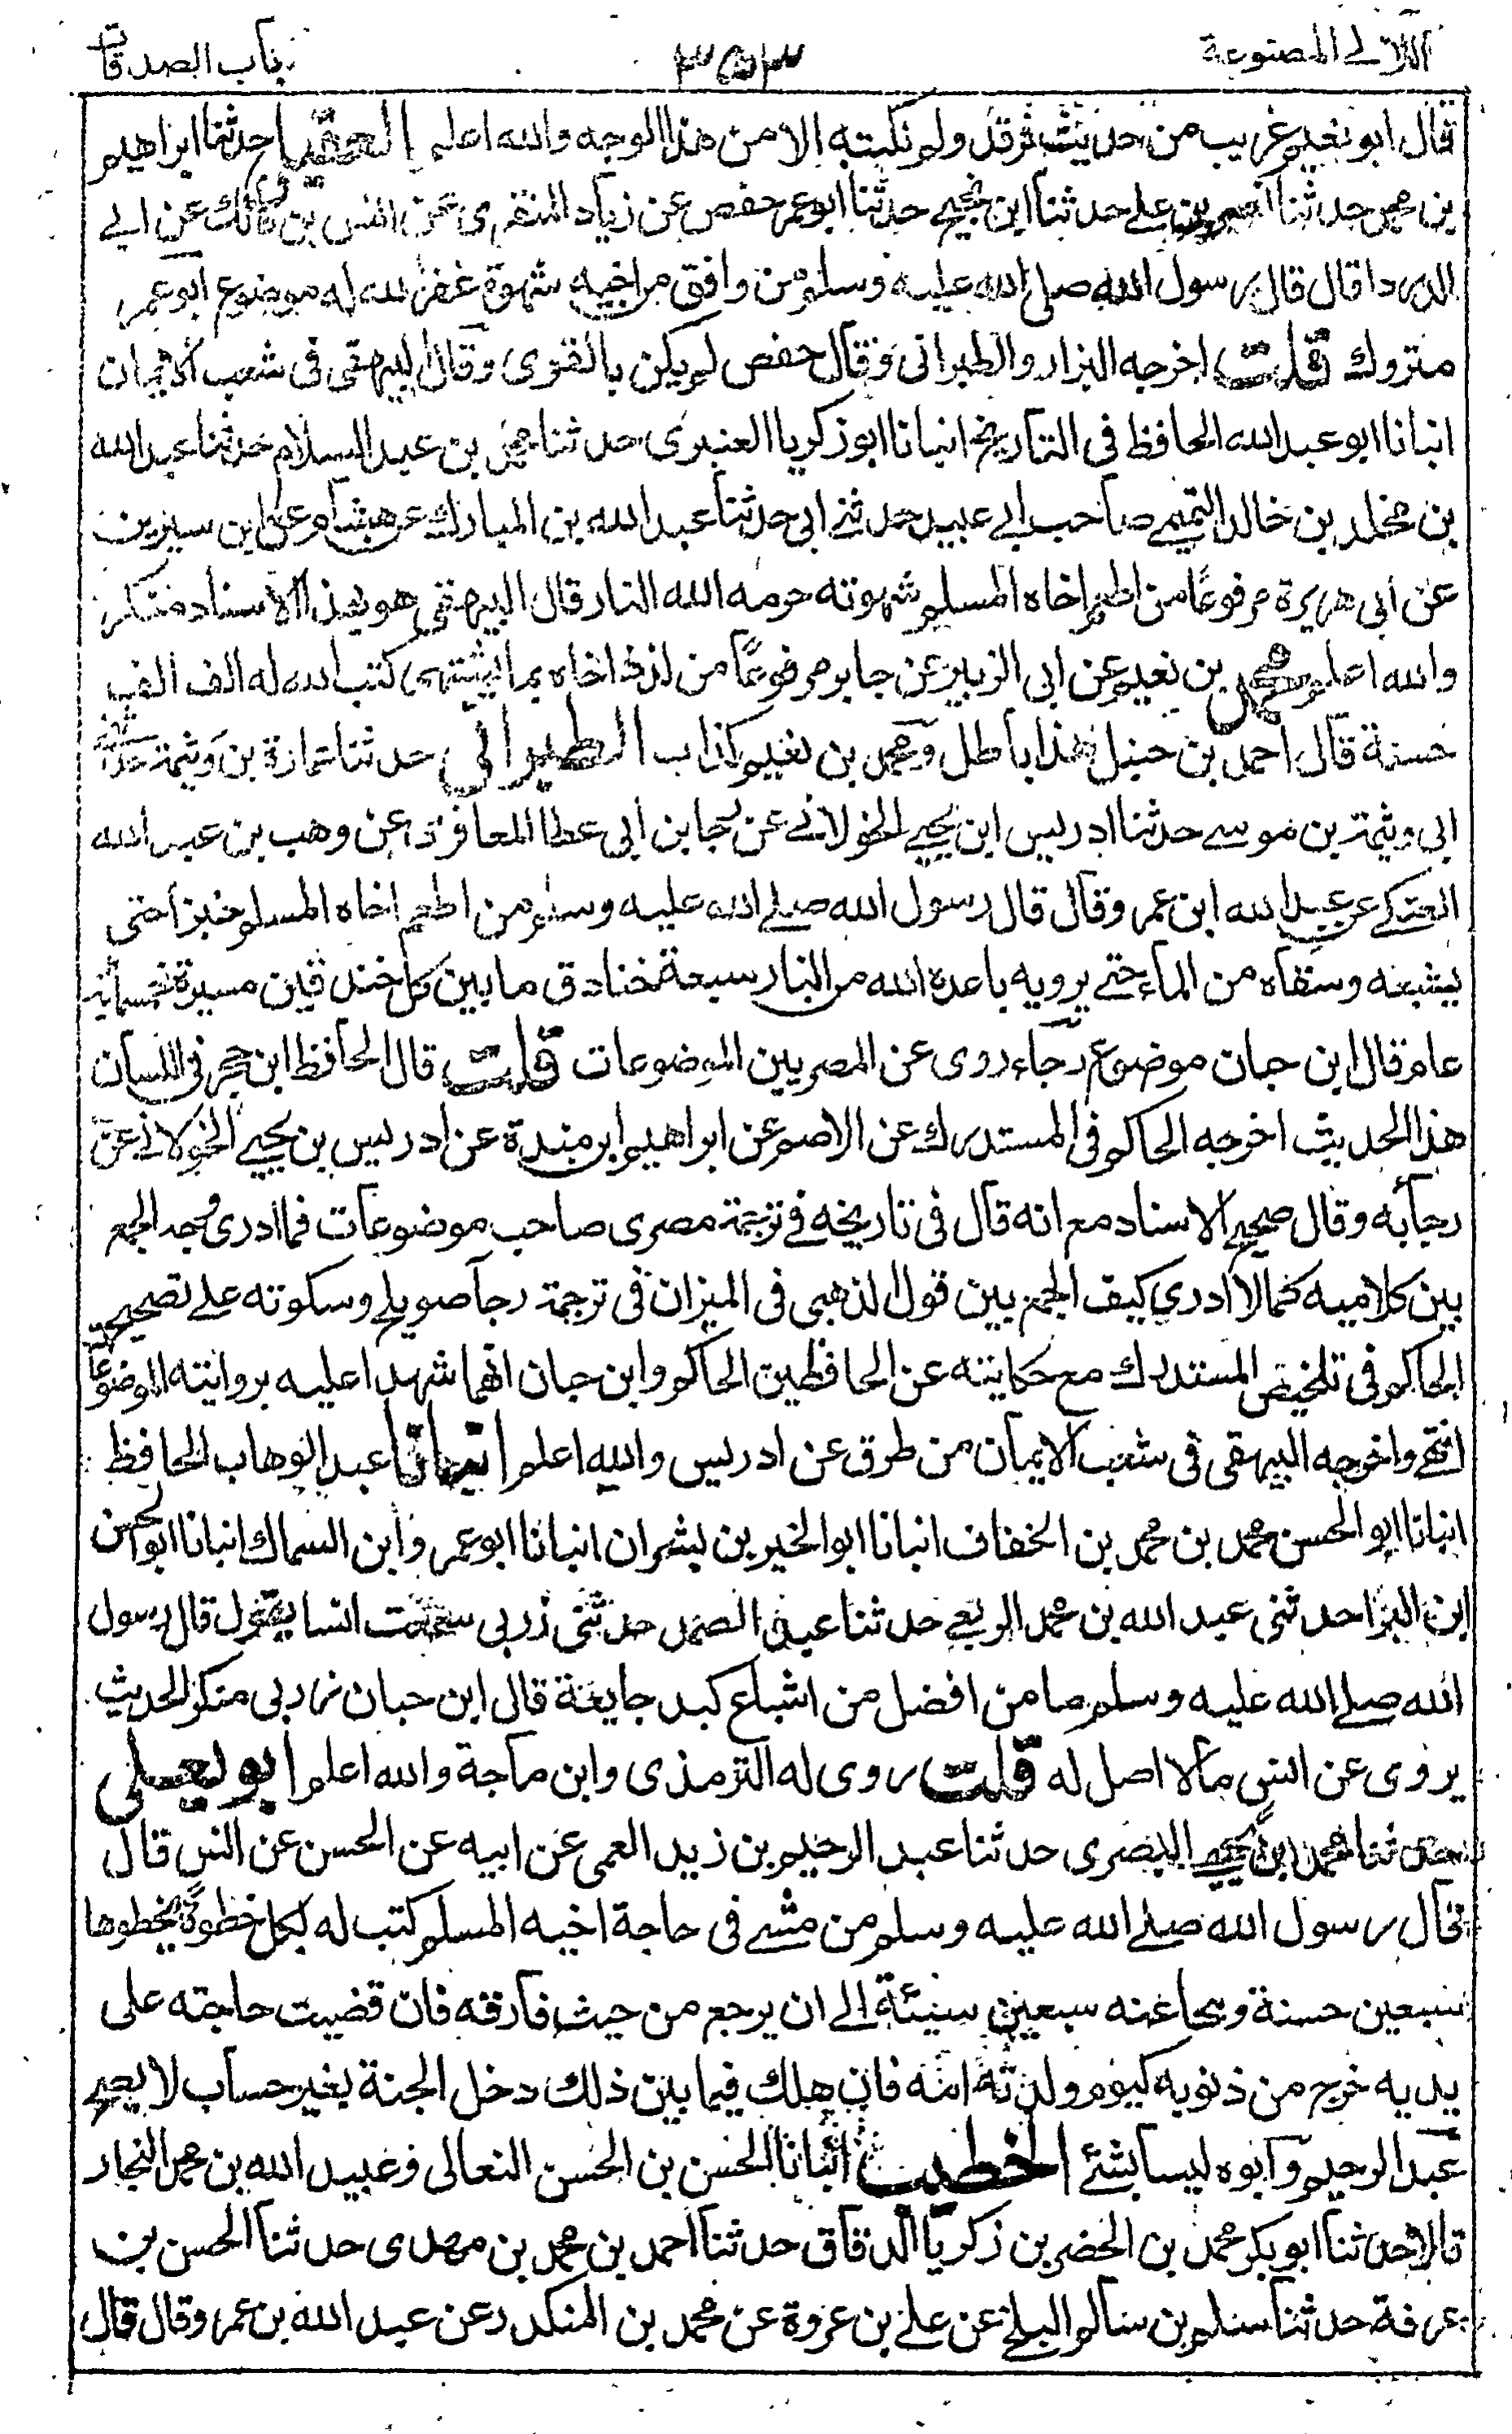 اللآلى المصنوعة ٣٥٣ باب الصدقات
قال ابو نعيم غريب من حديث ثرقد ولم نكتبه الا من هذا الوجه والله اعلم العقيلى حدثنا ابراهيم
بن محمد حدثنا نصر بن على حدثنا ابن نجيح حدثنا ابو عمر حفص عن زياد المنقرى عن انس بن مالك عن ابى
الدرداء قال قال رسول الله صلى الله عليه وسلم من وافق من اخيه شهوة غفر الله له موضوع ابو عمر
متروك قلت اخرجه البزار والطبرانى وقال حفص لم يكن بالقوى وقال البيهقى فى شعب الايمان
انبانا ابو عبد الله الحافظ فى التاريخ انبانا ابو زكريا العنبرى حدثنا محمد بن عبد السلام حدثنا عبد الله
بن مخلد بن خالد التميمى صاحب ابى عبيد حدثنى ابى حدثنا عبد الله بن المبارك عن هشام عن ابن سيرين
عن ابى هريرة مرفوعا من اطعم اخاه المسلم شهوته حرمه الله النار قال البيهقى هو بهذا الاسناد منكر
والله اعلم محمد بن نعيم عن ابى الزبير عن جابر مرفوعا من لذذ اخاه بما يشتهى كتب الله له الف الف
حسنة قال احمد بن حنبل هذا باطل ومحمد بن نعيم كذاب الطبرانى حدثنا عمارة بن وثيمة حدثنا
ابى وثيمة بن موسى حدثنا ادريس ابن يحيى الخولانى عن رجا بن ابى عطا المعافرى عن وهب بن عبد الله
العتكى عن عبد الله ابن عمرو قال قال رسول الله صلى الله عليه وسلم من اطعم اخاه المسلم خبزا حتى
يشبعه وسقاه من الماء حتى يرويه باعده الله من النار سبعة خنادق ما بين كل خندقين مسيرة خمسمائة
عام قال ابن حبان موضوع رجاء روى عن المصريين الموضوعات قلت قال الحافظ ابن حجر فى اللسان
هذا الحديث اخرجه الحاكم فى المستدرك عن الاصم عن ابراهيم ابن مندة عن ادريس بن يحيى الخولانى عن
رجا به وقال صحيح الاسناد مع انه قال فى تاريخه فى ترجمة مصرى صاحب موضوعات فما ادرى وجه الجمع
بين كلاميه كما لا ادري كيف الجمع بين قول الذهبى فى الميزان فى ترجمة رجا صويلح وسكوته على تصحيح
الحاكم فى تلخيص المستدرك مع حكايته عن الحافظين الحاكم وابن حبان انهما شهدا عليه بروايته الموضوعات
انتهى واخرجه البيهقى فى شعب الايمان من طرق عن ادريس والله اعلم انبانا عبد الوهاب الحافظ
انبانا ابو الحسن محمد بن محمد بن الخفاف انبانا ابو الخير بن بشران انبانا ابو عمرو ابن السماك انبانا ابو الحسن
ابن البزا حدثنى عبد الله بن محمد الربعى حدثنا عبد الصمد حدثنى زربى سمعت انسا يقول قال رسول
الله صلى الله عليه وسلم ما من افضل من اشباع كبد جايعة قال ابن حبان زربى منكر الحديث
يروى عن انس ما لا اصل له قلت روى له الترمذى وابن ماجة والله اعلم ابو يعلى
حدثنا محمد ابن يحيى البصرى حدثنا عبد الرحيم بن زيد العمى عن ابيه عن الحسن عن انس قال
قال رسول الله صلى الله عليه وسلم من مشى فى حاجة اخيه المسلم كتب له بكل خطوة يخطوها
سبعين حسنة ومحا عنه سبعين سيئة الى ان يرجع من حيث فارقه فان قضيت حاجته على
يديه خرج من ذنوبه كيوم ولدته امه فان هلك فيما بين ذلك دخل الجنة بغير حساب لا يصح
عبد الرحيم وابوه ليسا بشئ الخطيب انبانا الحسن بن الحسن النعالى وعبيد الله بن محمد النجار
قالا حدثنا ابو بكر محمد بن الخضر بن زكريا الدقاق حدثنا احمد بن محمد بن مهدى حدثنا الحسن بن
عرفة حدثنا سلم بن سالم البلخى عن على بن عروة عن محمد بن المنكدر عن عبد الله بن عمرو قال قال